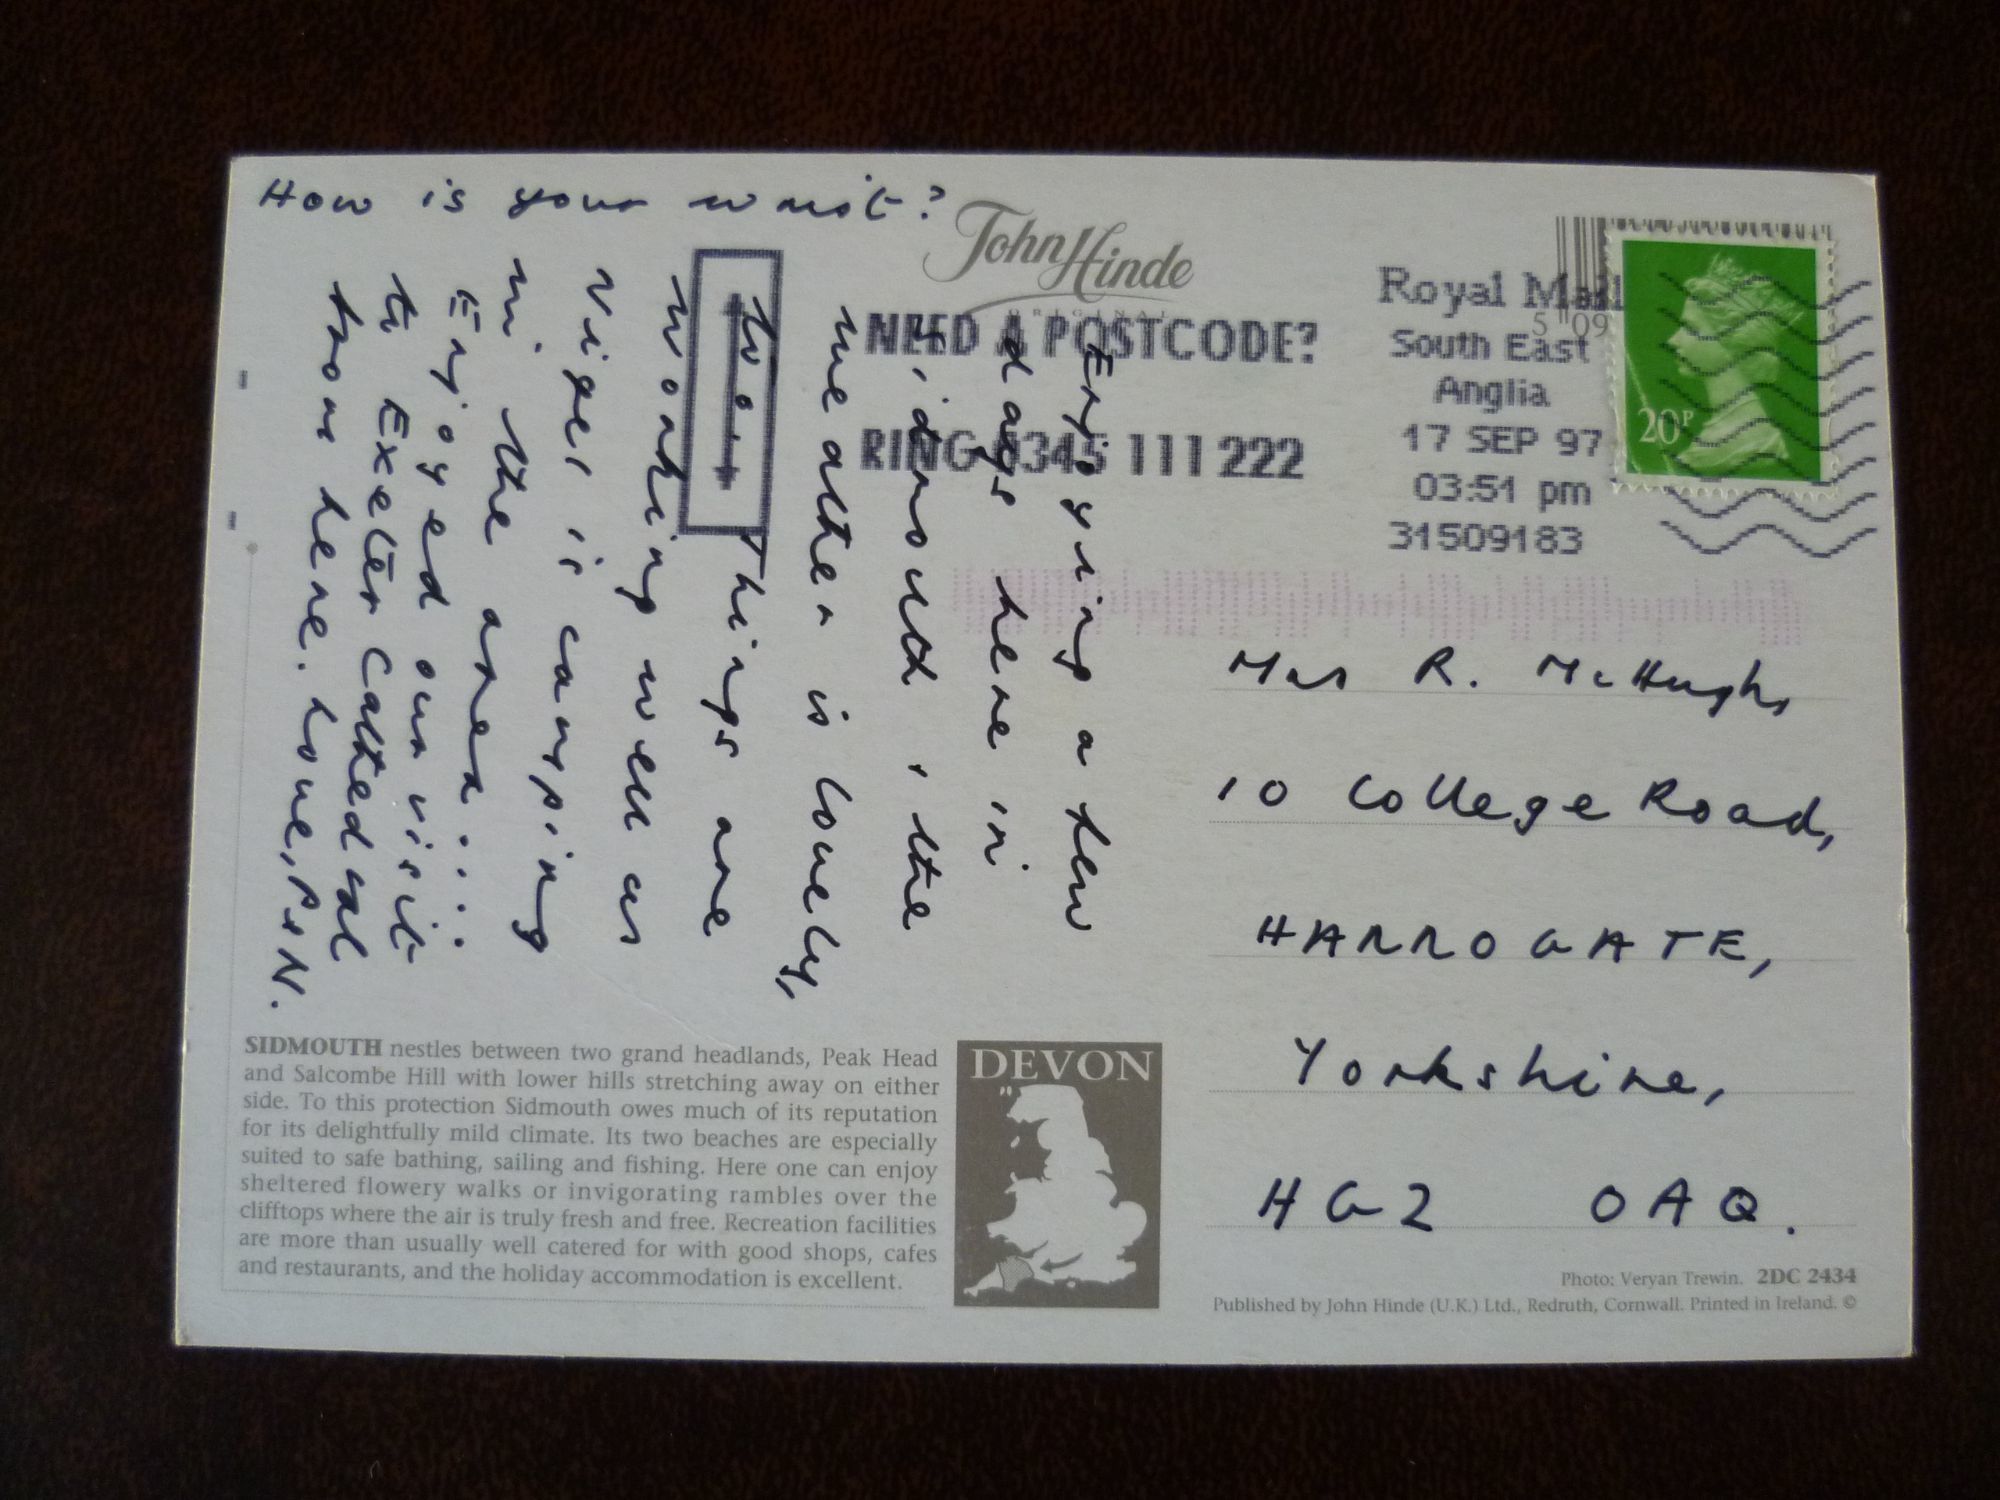 How is your wrist?
Enjoying a few
days here in
Sidmouth, the
weather is lovely,
too. Things are
working well as
Nigel is camping
in the area....
Enjoyed our visit
to Exeter Cathedral
from here. Love, P & N.
John Hinde
ORIGINAL
NEED A POSTCODE?
RING 0345 111 222
Royal Mail
South East
Anglia
17 SEP 97
03:51 pm
31509183
5 09
20P
Mrs R. McHugh,
10 College Road,
HARROGATE,
Yorkshire,
HG2 0AQ.
SIDMOUTH nestles between two grand headlands, Peak Head
and Salcombe Hill with lower hills stretching away on either
side. To this protection Sidmouth owes much of its reputation
for its delightfully mild climate. Its two beaches are especially
suited to safe bathing, sailing and fishing. Here one can enjoy
sheltered flowery walks or invigorating rambles over the
clifftops where the air is truly fresh and free. Recreation facilities
are more than usually well catered for with good shops, cafes
and restaurants, and the holiday accommodation is excellent.
DEVON
Photo: Veryan Trewin. 2DC 2434
Published by John Hinde (U.K.) Ltd., Redruth, Cornwall. Printed in Ireland. ©